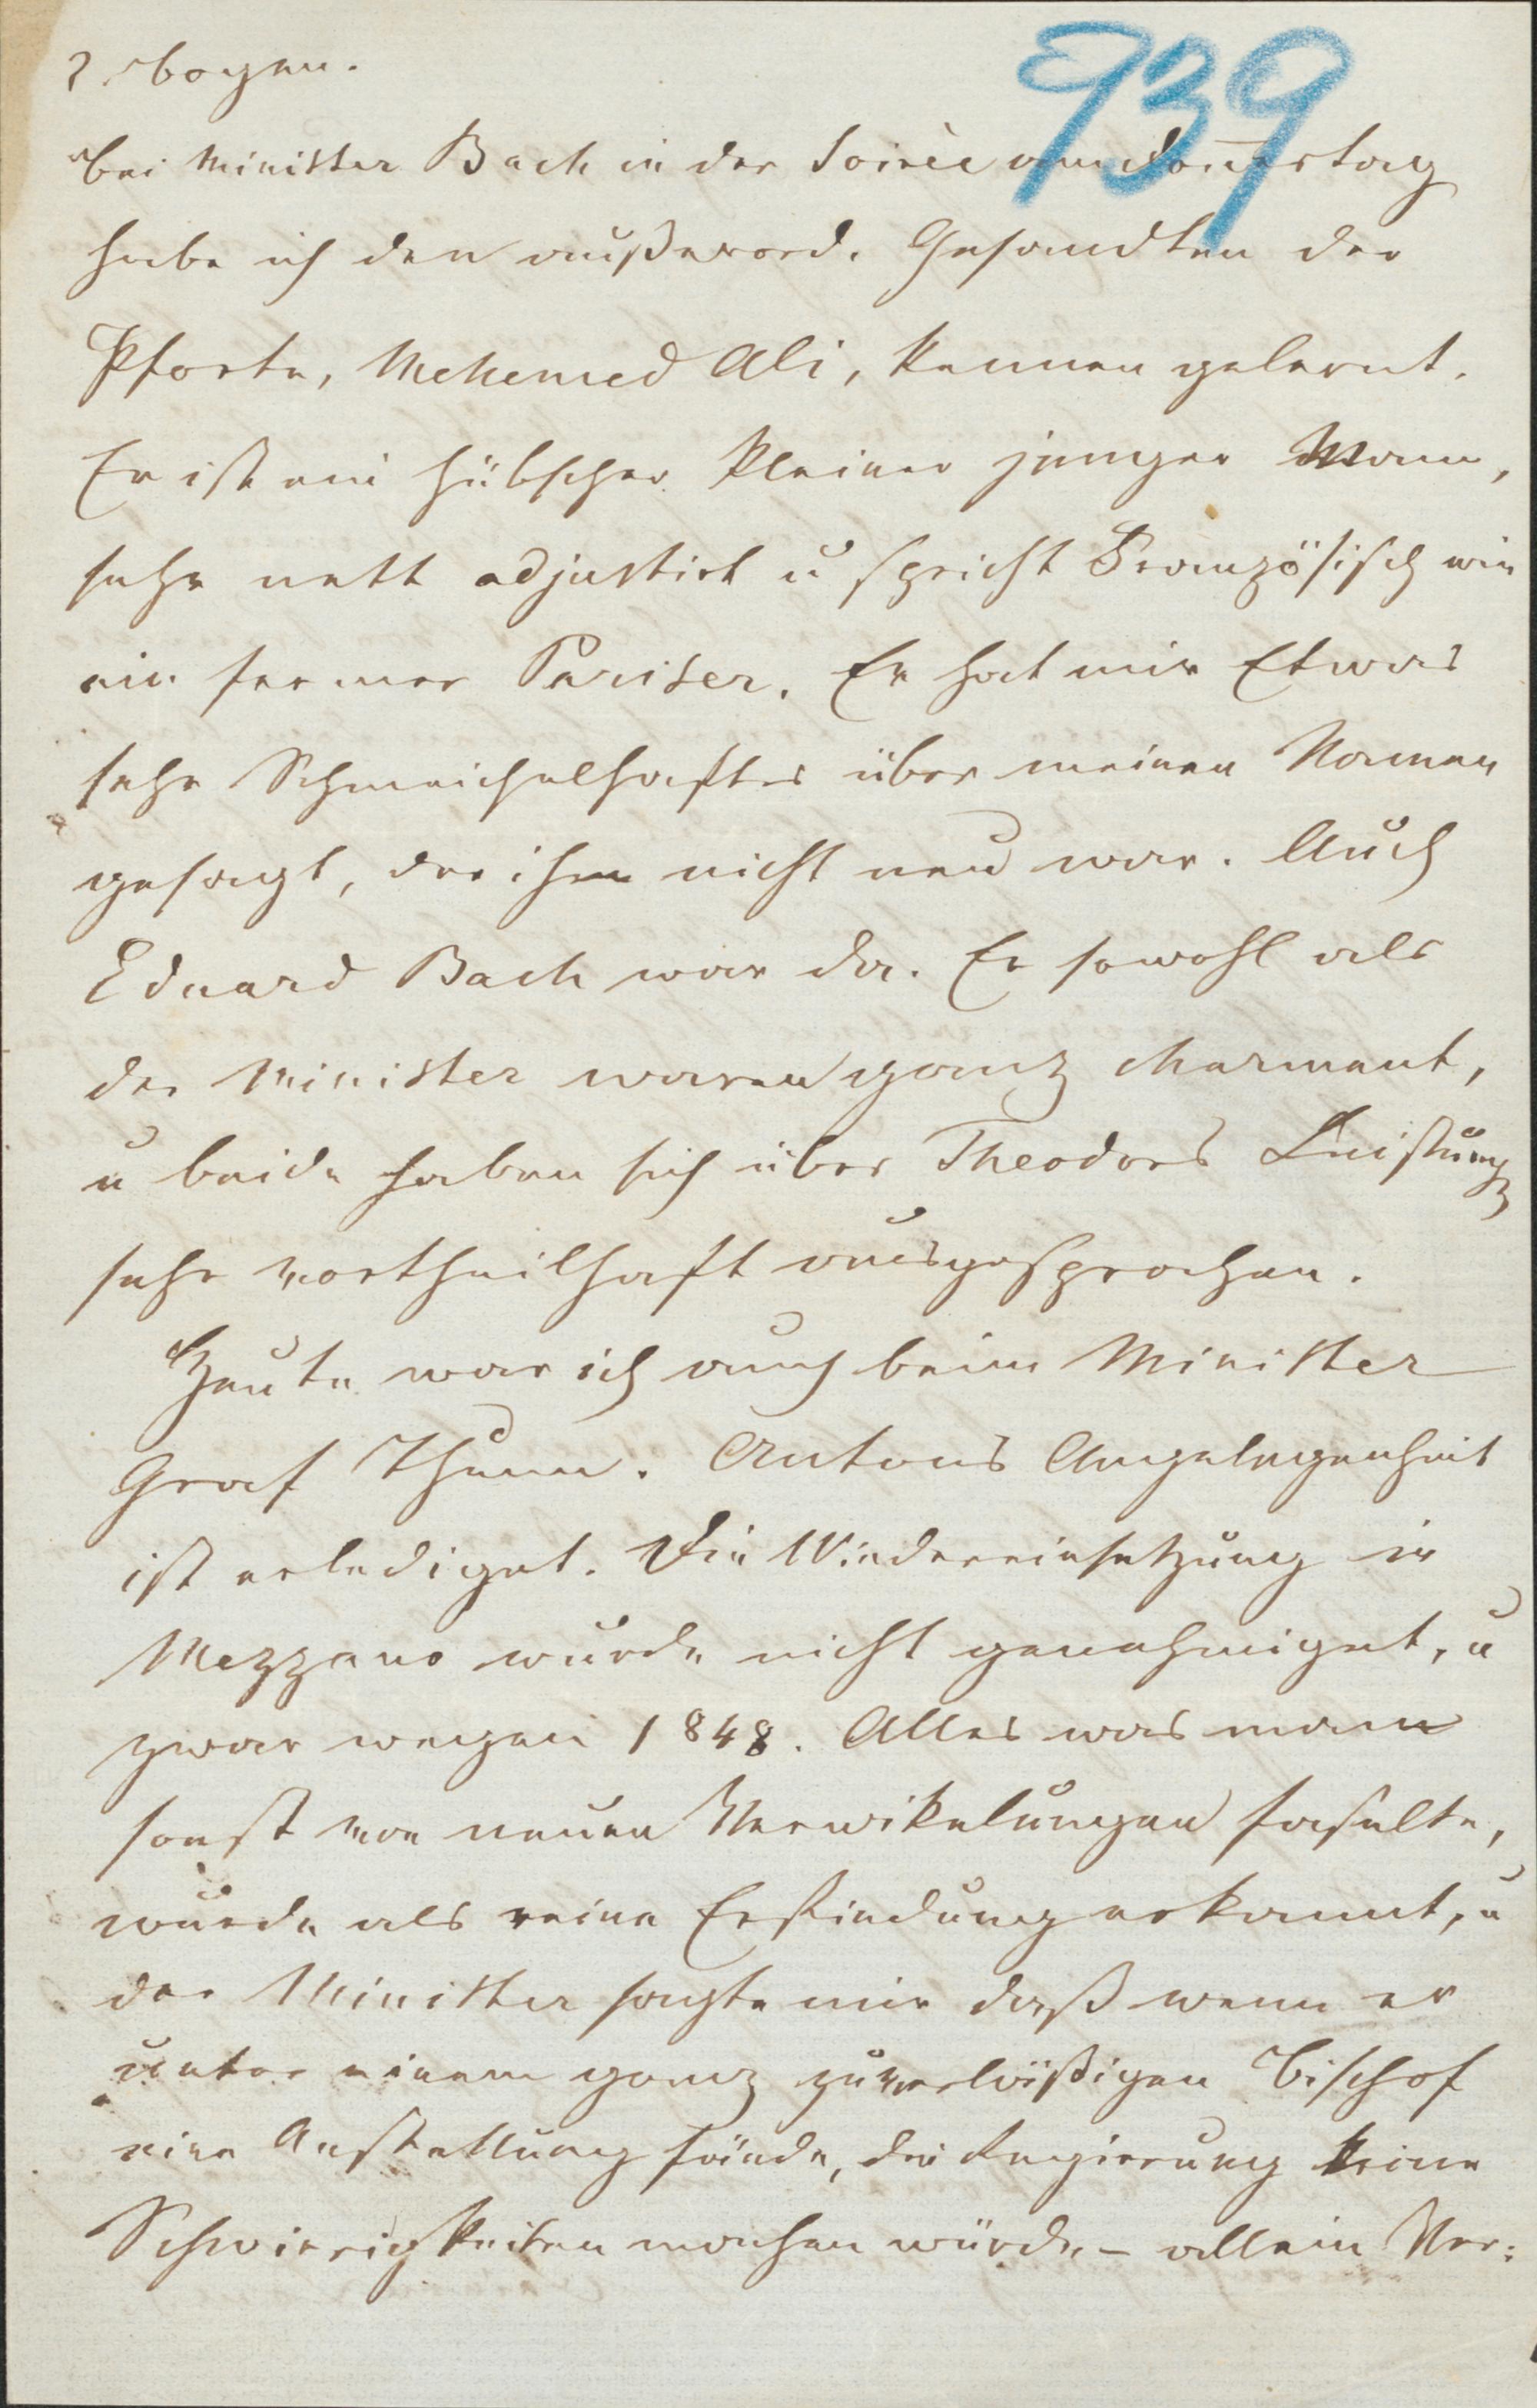 2 Bogen.
939
Bei Minister Bach in der Soirèe am Donnerstag
habe ich den außerord. Gesandten der
Pforte, Mehemed Ali, kennen gelernt.
Er ist ein hübscher kleiner junger Mann,
sehr nett adjustirt u spricht Französisch wie
ein fermer Pariser. Er hat mir Etwas
sehr Schmeichelhaftes über meinen Namen
gesagt, der ihm nicht neu war. Auch
Eduard Bach war da. Er sowohl als
der Minister waren ganz charmant,
u beide haben sich über Theodors Leistung
sehr vortheilhaft ausgesprochen.
Heute war ich auch beim Minister
Graf Thunn. Antons Angelegenheit
ist erlediget. Die Wiedereinsetzung in
Mezzano wurde nicht genehmiget, u
zwar wegen 1848. Alles was man
sonst von neuen Verwikelungen faselte,
wurde als reine Erfindung erkannt, u
der Minister sagte mir daß wenn er
unter einem ganz zuverläßigen Bischof
eine Anstellung fände, die Regierung keine
Schwierigkeiten machen würde – allein Ver: